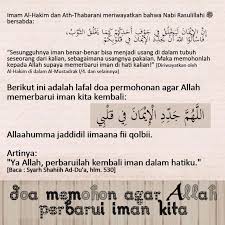 Imam Al-Hakim dan Ath-Thabarani meriwayatkan bahwa Nabi Rasulillahi ﷺ
bersabda:
إِنَّ الْإِيْمَانَ لَيَخْلَقُ فِي جَوْفِ أَحَدِكُمْ كَمَا يَخْلَقُ الثَّوْبُ
"Sesungguhnya iman benar-benar bisa menjadi usang di dalam tubuh
seseorang dari kalian, sebagaimana usangnya pakaian. Maka memohonlah
kepada Allah supaya memperbarui iman di hati kalian!" [Diriwayatkan oleh
Al-Hakim di dalam Al-Mustadrak (/4, dan selainnya)
Berikut ini adalah lafal doa permohonan agar Allah
memerbarui iman kita kembali:
اللَّهُمَّ جَدِّدِ الْإِيْمَانَ فِي قَلْبِي
Allaahumma jaddidil iimaana fii qolbii.
Artinya:
"Ya Allah, perbaruilah kembali iman dalam hatiku."
[Baca : Syarh Shahiih Ad-Du'a, hlm. 530]
doa memohon agar Allah
perbarui iman kita